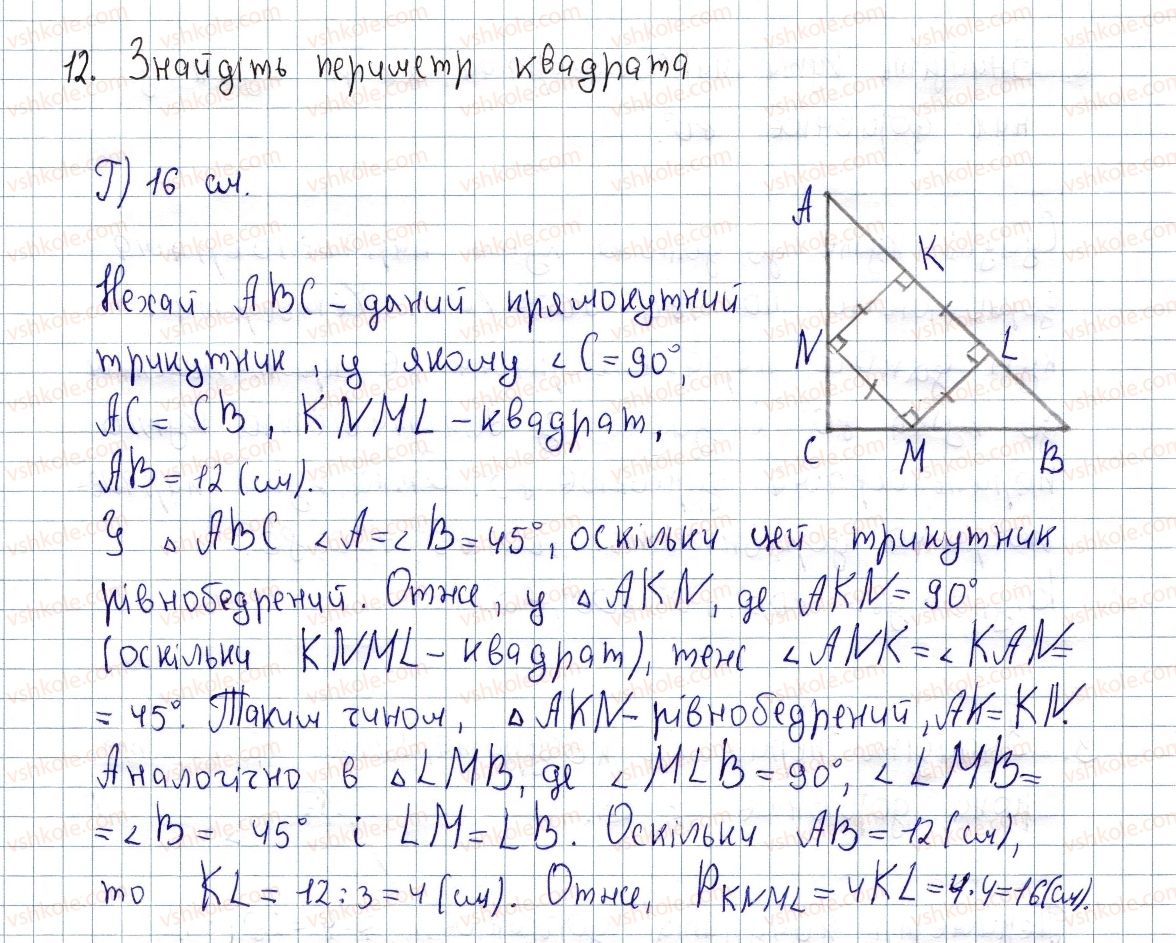 12. Знайдіть периметр квадрата
Г) 16 см.
A
K
N
L
C
M
B
Нехай ABC – даний прямокутний
трикутник, у якому ∠C = 90°,
AC = CB, KNML – квадрат,
AB = 12 (см).
У △ ABC ∠A = ∠B = 45°, оскільки цей трикутник
рівнобедрений. Отже, у △ AKN, де AKN = 90°
(оскільки KNML – квадрат), теж ∠ANK = ∠KAN =
= 45°. Таким чином, △ AKN – рівнобедрений, AK = KN.
Аналогічно в △ LMB, де ∠MLB = 90°, ∠LMB =
= ∠B = 45° і LM = LB. Оскільки AB = 12 (см),
то KL = 12 : 3 = 4 (см). Отже, P KNML = 4KL = 4 · 4 = 16 (см).
vshkole.com